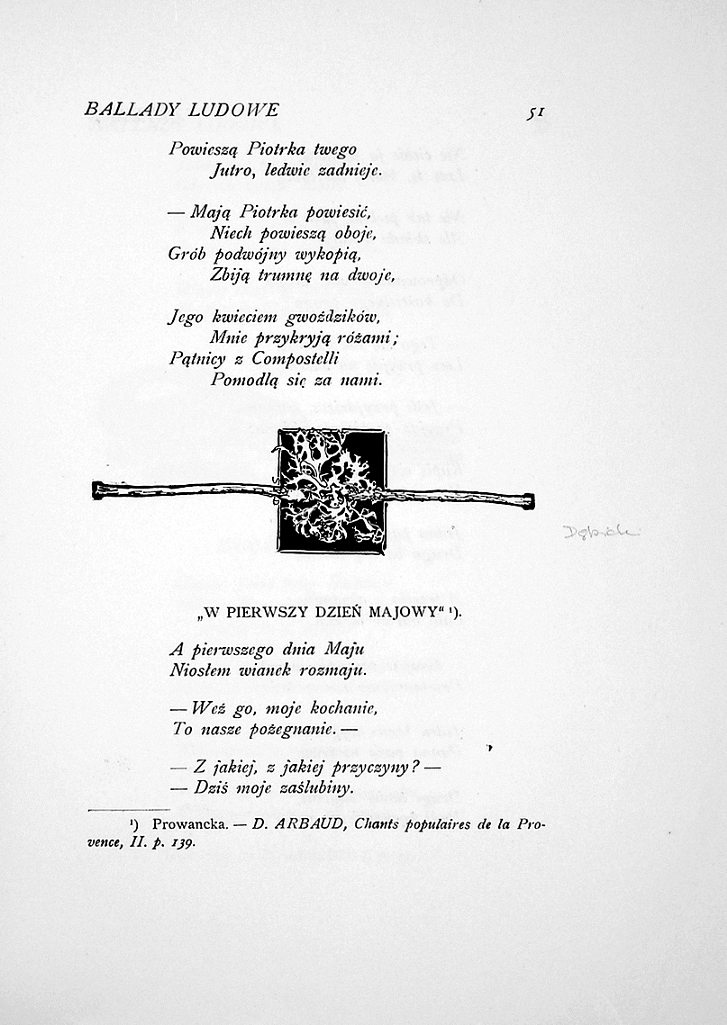 BALLADY LUDOWE 51
Powieszą Piotrka twego
Jutro, ledwie zadnieje.
— Mają Piotrka powiesić,
Niech powieszą oboje,
Grób podwójny wykopią,
Zbiją trumnę na dwoje,
Jego kwieciem gwoździków,
Mnie przykryją różami;
Pątnicy z Compostelli
Pomodlą się za nami.
„W PIERWSZY DZIEŃ MAJOWY“ ¹).
A pierwszego dnia Maju
Niosłem wianek rozmaju.
— Weź go, moje kochanie,
To nasze pożegnanie. —
— Z jakiej, z jakiej przyczyny? —
— Dziś moje zaślubiny.
¹) Prowancka. — D. ARBAUD, Chants populaires de la Pro-
vence, II. p. 139.